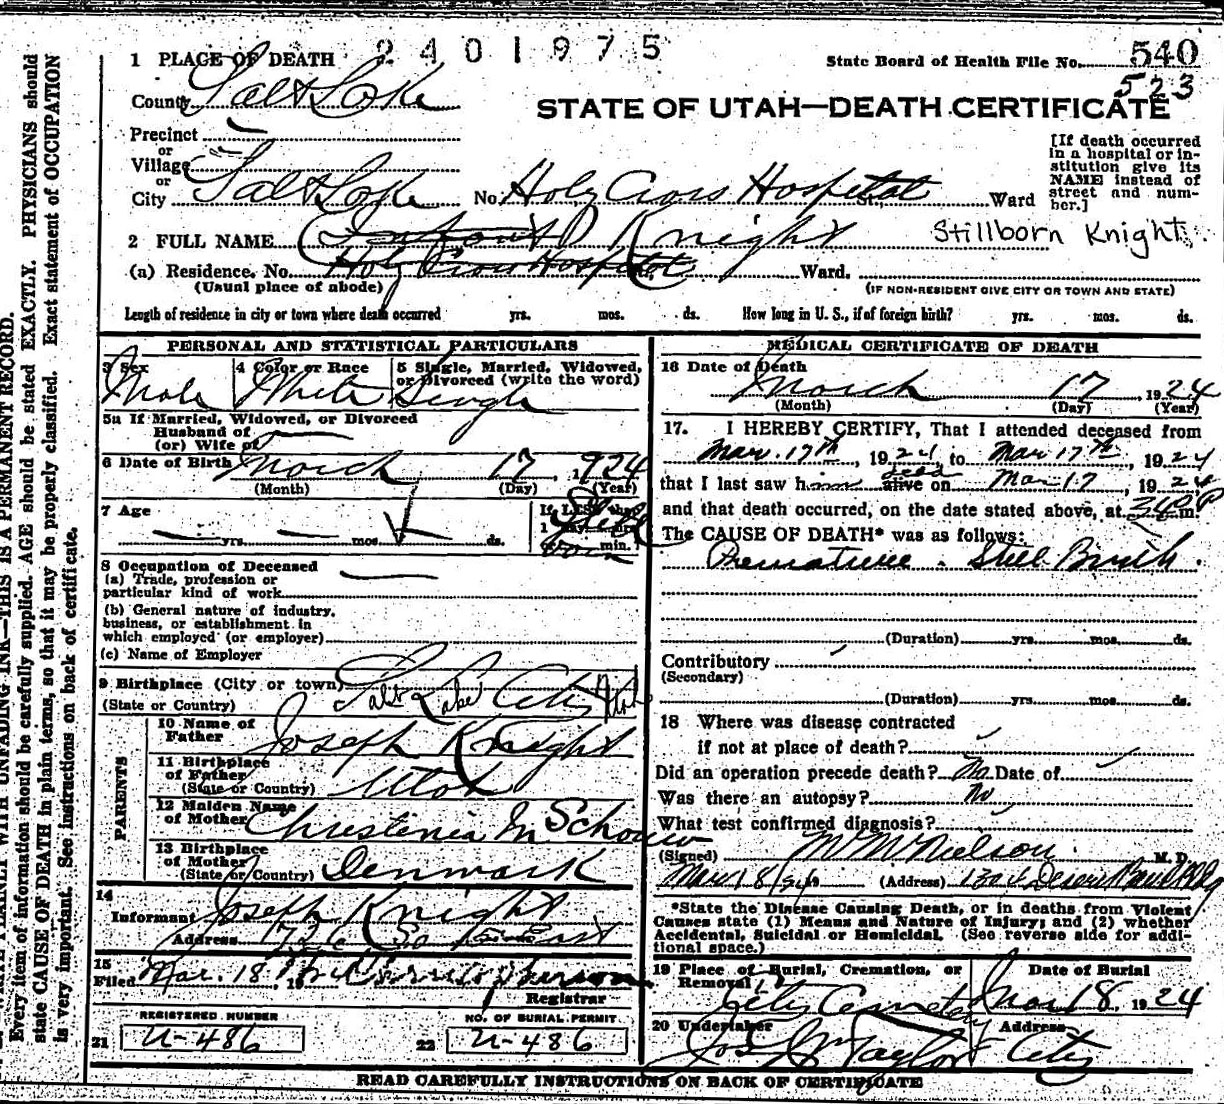 2401975
1 PLACE OF DEATH
State Board of Health File No. 540
523
County Salt Lake
STATE OF UTAH—DEATH CERTIFICATE
Precinct
or
Village
or
City Salt Lake No. Holy Cross Hospital St., Ward
[If death occurred
in a hospital or in-
stitution give its
NAME instead of
street and num-
ber.]
2 FULL NAME Knight Stillborn Knight
(a) Residence. No. Holy Cross Hospital Ward.
(Usual place of abode)
(IF NON-RESIDENT GIVE CITY OR TOWN AND STATE)
Length of residence in city or town where death occurred yrs. mos. ds. How long in U. S., if of foreign birth? yrs. mos. ds.
PERSONAL AND STATISTICAL PARTICULARS
3 Sex
Male
4 Color or Race
White
5 Single, Married, Widowed,
or Divorced (write the word)
Single
5a If Married, Widowed, or Divorced
Husband of
(or) Wife of
6 Date of Birth March 17, 1924
(Month) (Day) (Year)
7 Age
yrs. mos. ds.
If LESS than
1 day hrs.
min.
8 Occupation of Deceased
(a) Trade, profession or
particular kind of work
(b) General nature of industry,
business, or establishment in
which employed (or employer)
(c) Name of Employer
9 Birthplace (City or town) Salt Lake City Utah
(State or Country)
PARENTS
10 Name of
Father Joseph Knight
11 Birthplace
of Father
(State or Country) Utah
12 Maiden Name
of Mother Christenia M Schouw
13 Birthplace
of Mother
(State or Country) Denmark
14
Informant Joseph Knight
Address 1726 So East
15
Filed Mar. 18, 19
Registrar
REGISTERED NUMBER
21 U-486
NO. OF BURIAL PERMIT
22 U-486
MEDICAL CERTIFICATE OF DEATH
16 Date of Death
March 17 1924
(Month) (Day) (Year)
17. I HEREBY CERTIFY, That I attended deceased from
Mar. 17th, 1924 to Mar 17th, 1924
that I last saw him alive on dead Mar 17, 1924
and that death occurred, on the date stated above, at 340 P m.
The CAUSE OF DEATH* was as follows:
Premature. Still Birth.
(Duration) yrs. mos. ds.
Contributory
(Secondary)
(Duration) yrs. mos. ds.
18 Where was disease contracted
if not at place of death?
Did an operation precede death? No Date of
Was there an autopsy? No
What test confirmed diagnosis?
(Signed) M M Nielson M. D.
Mar 18/24 (Address) Deseret Bank Bldg
*State the Disease Causing Death, or in deaths from Violent
Causes state (1) Means and Nature of Injury; and (2) whether
Accidental, Suicidal or Homicidal. (See reverse side for addi-
tional space.)
19 Place of Burial, Cremation, or
Removal
City Cemetery
Date of Burial
Mar 18 1924
20 Undertaker
Jos Taylor
Address
City
READ CAREFULLY INSTRUCTIONS ON BACK OF CERTIFICATE
WRITE PLAINLY WITH UNFADING INK—THIS IS A PERMANENT RECORD.
Every item of information should be carefully supplied. AGE should be stated EXACTLY. PHYSICIANS should
state CAUSE OF DEATH in plain terms, so that it may be properly classified. Exact statement of OCCUPATION
is very important. See instructions on back of certificate.